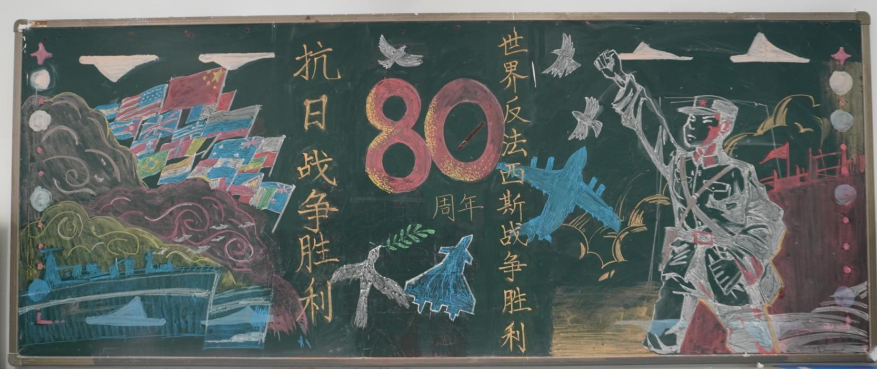 抗日战争胜利
80
周年
世界反法西斯战争胜利